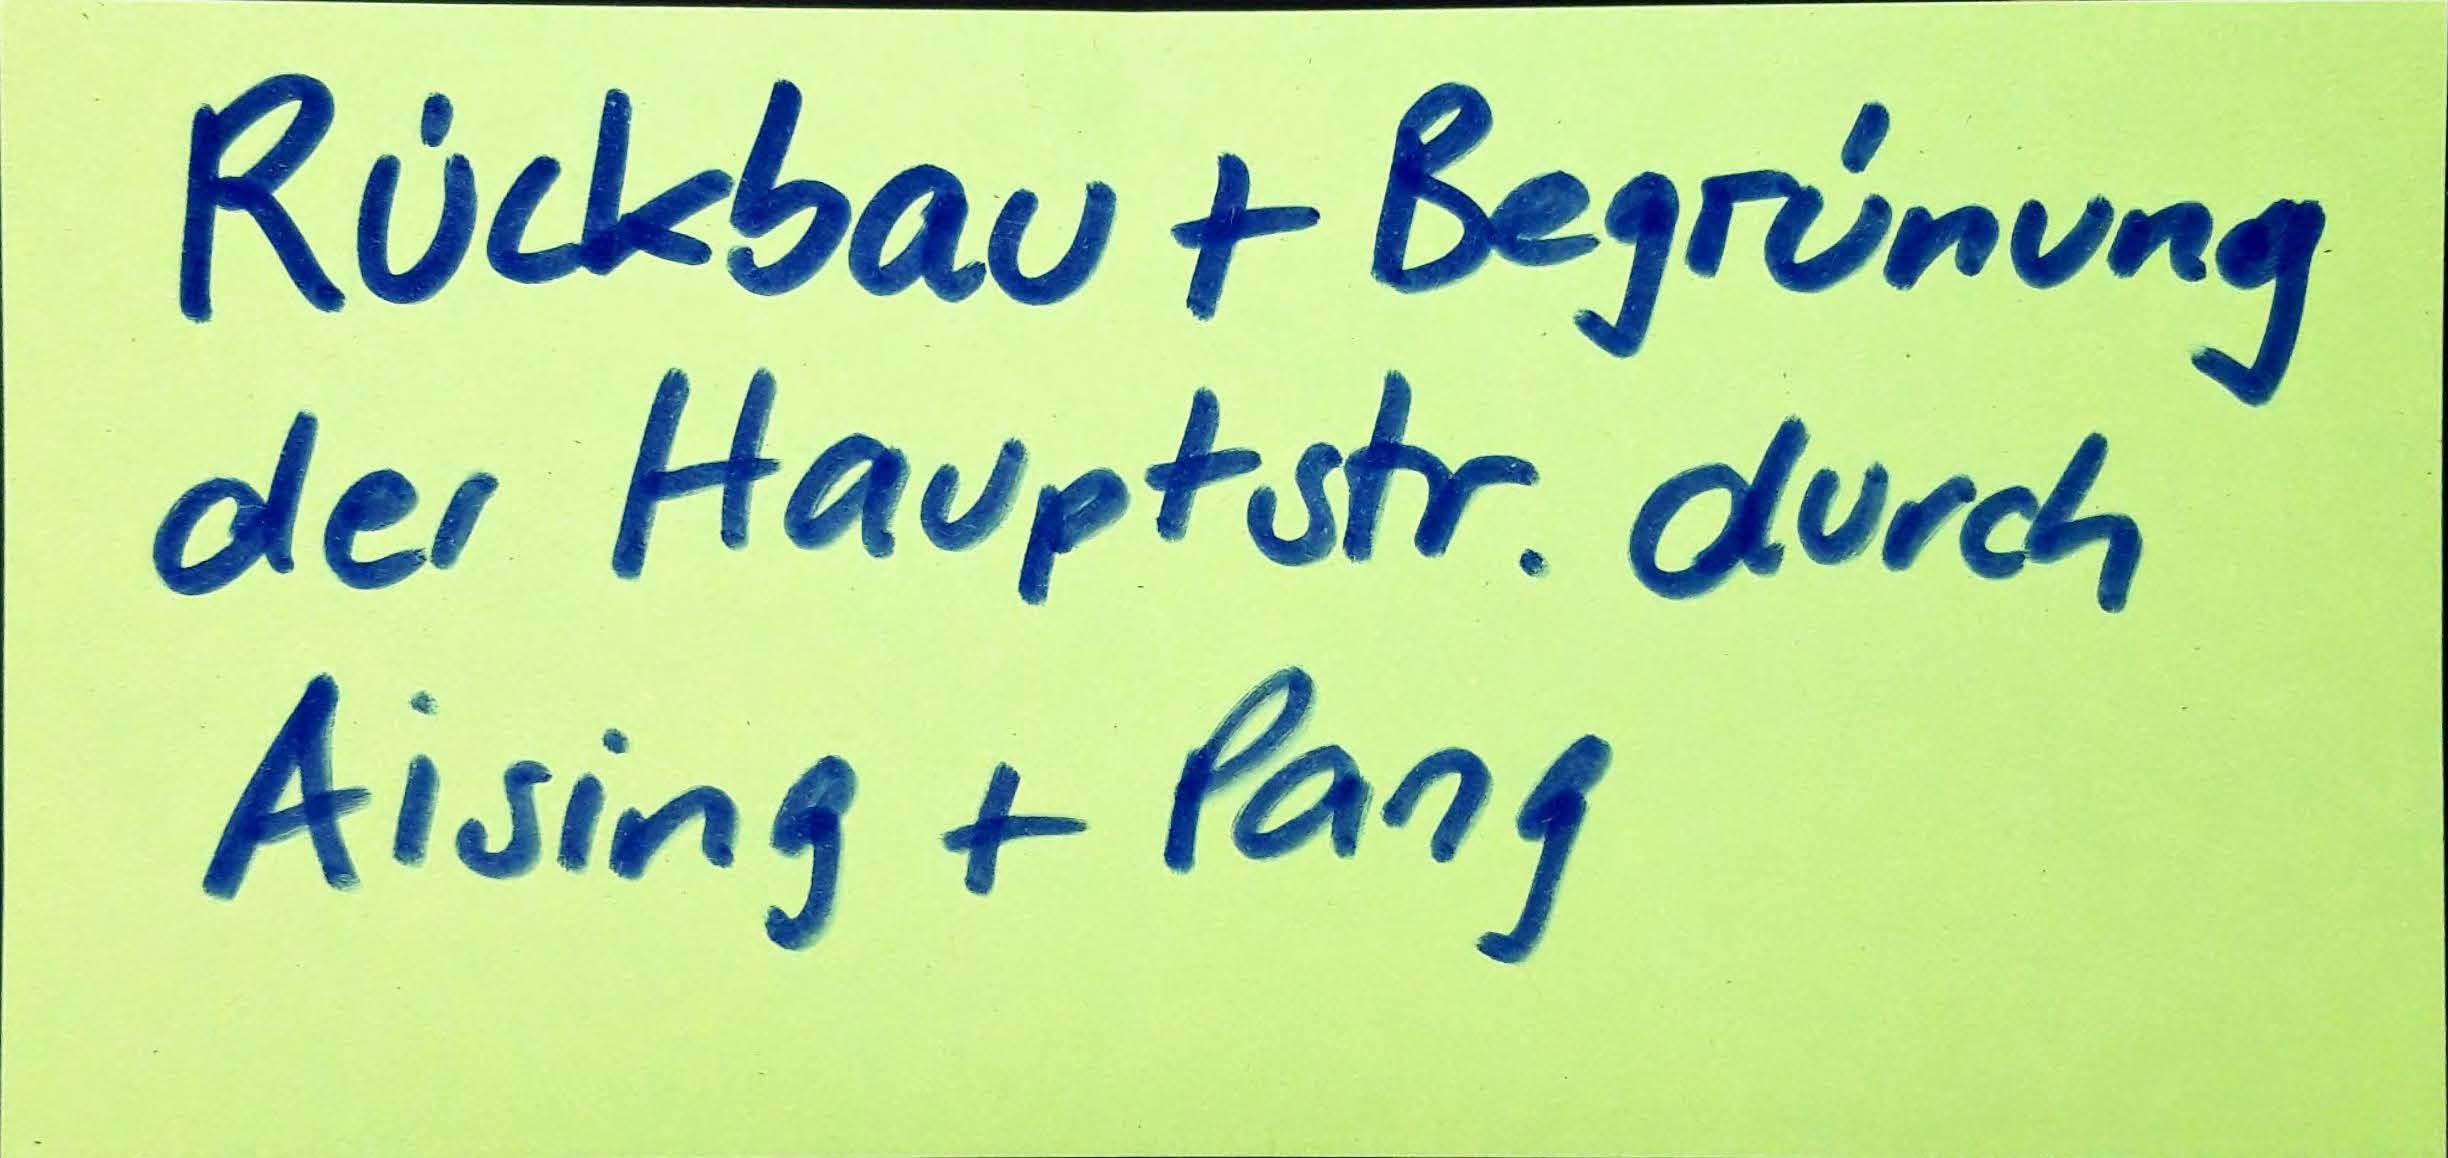 Rückbau + Begrünung
der Hauptstr. durch
Aising + Pang